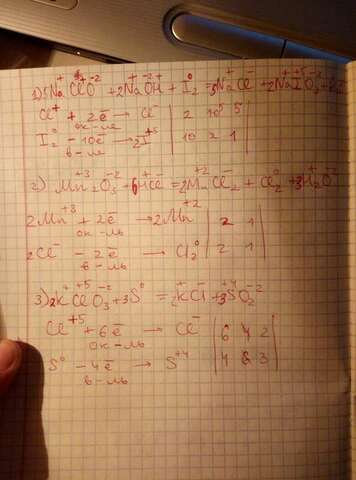 1) 5Na⁺Cl⁺O⁻² + 2Na⁺OH⁺ + I₂⁰ → 5Na⁺Cl⁻ + 2Na⁺I⁺⁵O₃⁻² +
Cl⁺ + 2ē → Cl⁻ | 2 | 10 5 | 5
ок-ль
I₂⁰ − 10ē → 2I⁺⁵ | 10 | 2 | 1
в-ль
2) Mn₂⁺³O₃⁻² + 6H⁺Cl⁻ = 2Mn⁺²Cl₂⁻ + Cl₂⁰ + 3H₂⁺O⁻²
2Mn⁺³ + 2ē → 2Mn⁺² | 2 | 1
ок-ль
2Cl⁻ − 2ē → Cl₂⁰ | 2 | 1
в-ль
3) 2K⁺Cl⁺⁵O₃⁻² + 3S⁰ = 2K⁺Cl⁻ + 3S⁺⁴O₂⁻²
Cl⁺⁵ + 6ē → Cl⁻ | 6 | 4 | 2
ок-ль
S⁰ − 4ē → S⁺⁴ | 4 | 6 | 3
в-ль